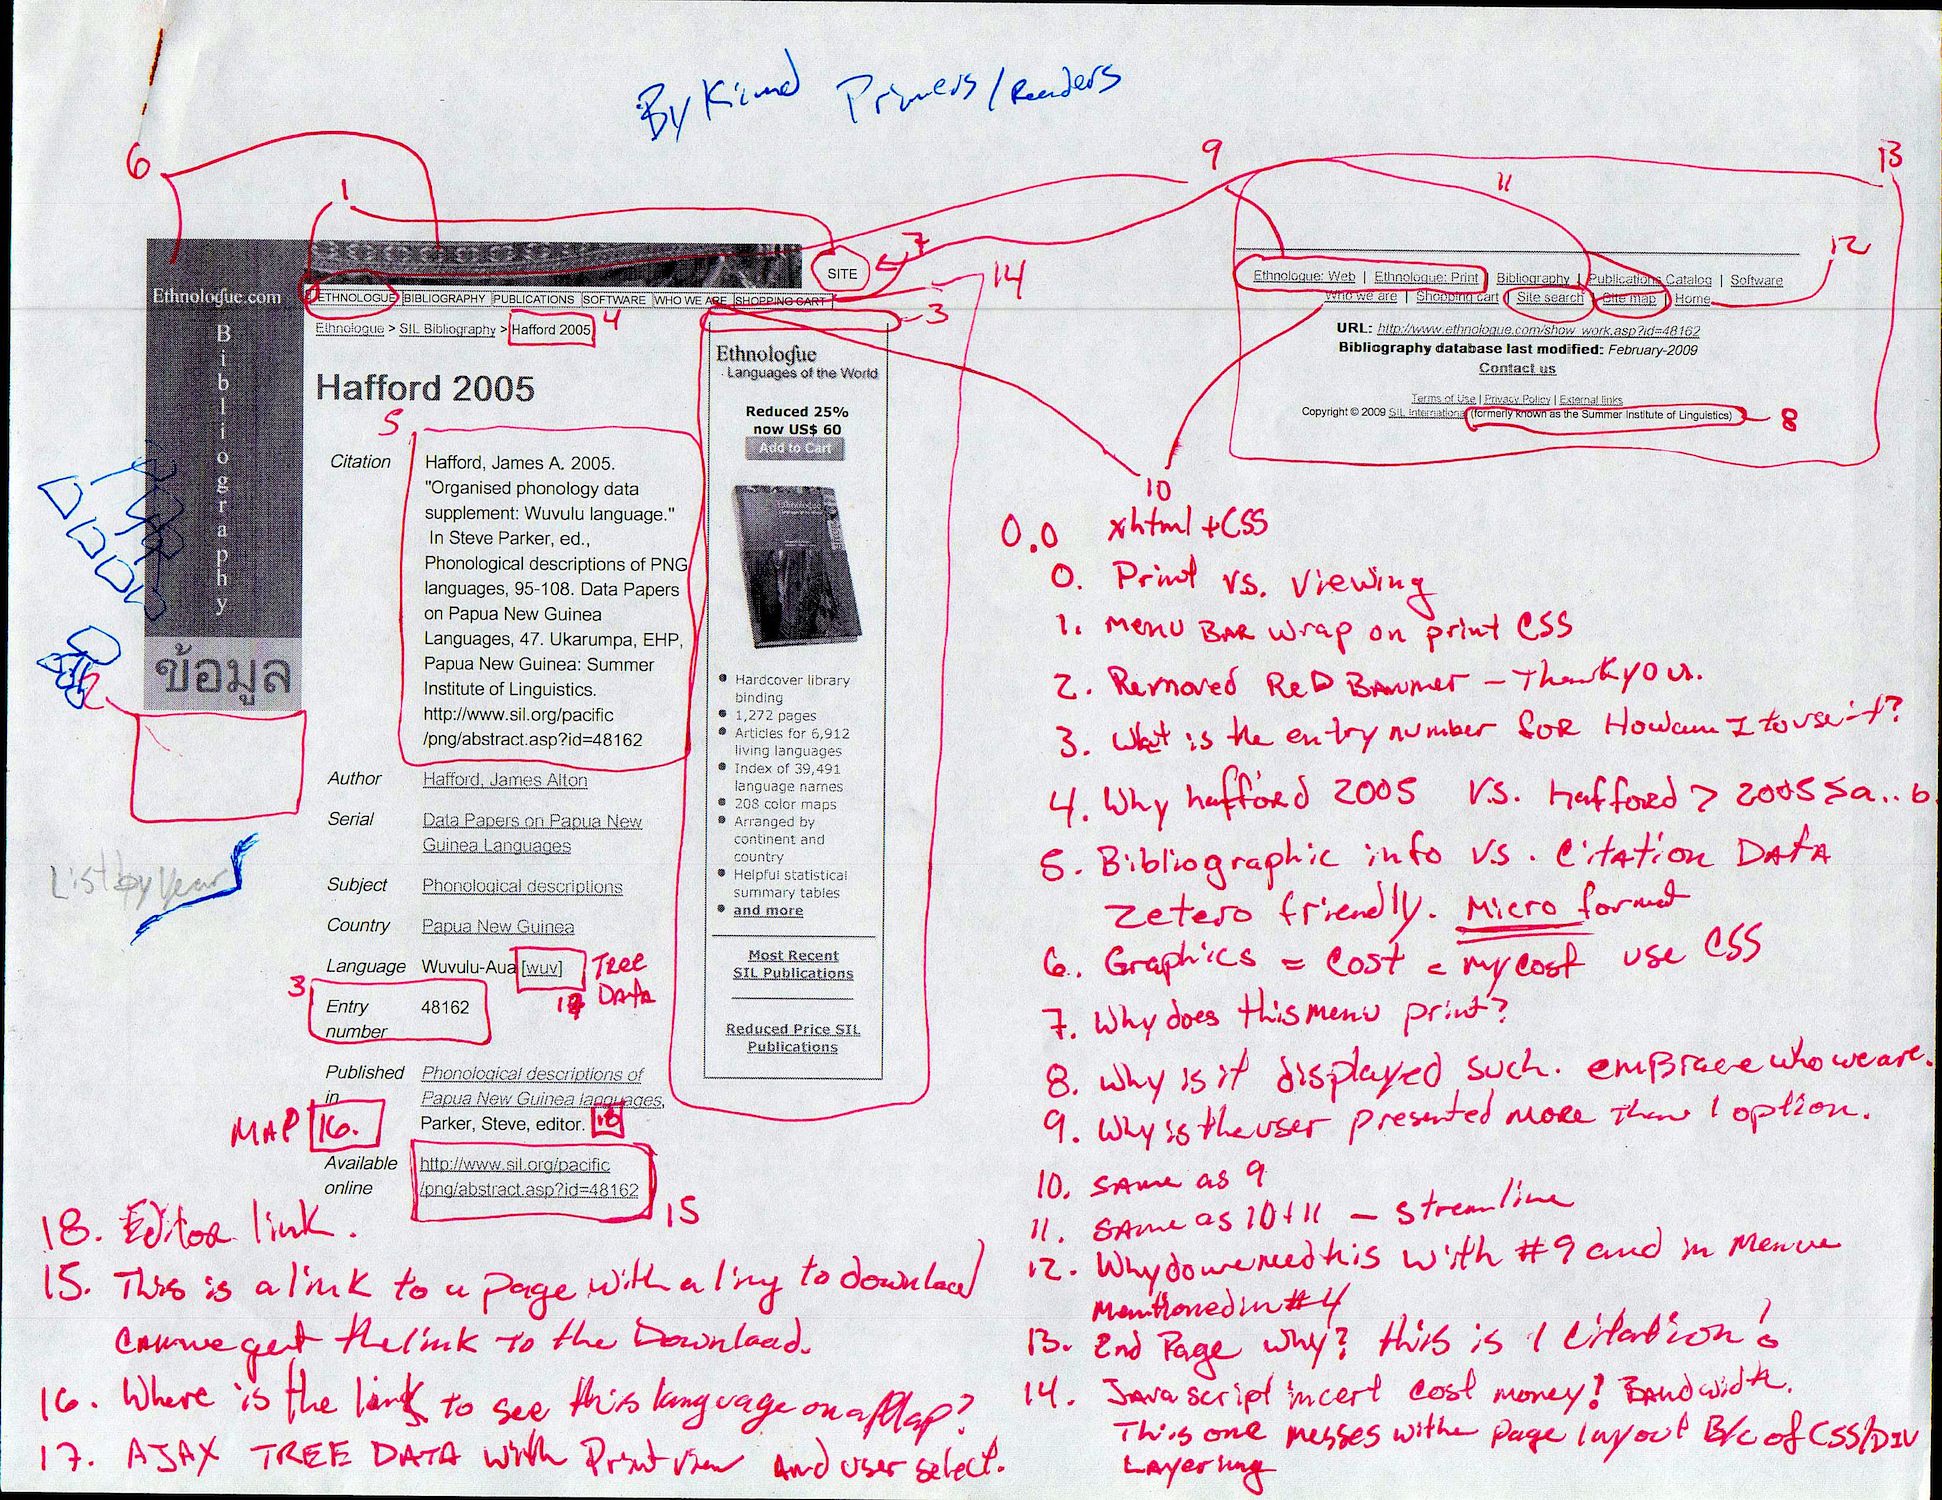 By Kind Primers/Readers
6
1
9
11
13
7
12
14
3
4
SITE
Ethnologue.com
Bibliography
ข้อมูล
ETHNOLOGUE BIBLIOGRAPHY PUBLICATIONS SOFTWARE WHO WE ARE SHOPPING CART
Ethnologue > SIL Bibliography > Hafford 2005
Hafford 2005
5
Citation Hafford, James A. 2005.
"Organised phonology data
supplement: Wuvulu language."
In Steve Parker, ed.,
Phonological descriptions of PNG
languages, 95-108. Data Papers
on Papua New Guinea
Languages, 47. Ukarumpa, EHP,
Papua New Guinea: Summer
Institute of Linguistics.
http://www.sil.org/pacific
/png/abstract.asp?id=48162
Author Hafford, James Alton
Serial Data Papers on Papua New
Guinea Languages
Subject Phonological descriptions
Country Papua New Guinea
Language Wuvulu-Aua [wuv]
TREE
DATA
17
3
Entry 48162
number
Published Phonological descriptions of
in Papua New Guinea languages,
Parker, Steve, editor. 18
MAP 16.
Available http://www.sil.org/pacific
online /png/abstract.asp?id=48162
15
2
List by year
Ethnologue
Languages of the World
Reduced 25%
now US$ 60
Add to Cart
Hardcover library
binding
1,272 pages
Articles for 6,912
living languages
Index of 39,491
language names
208 color maps
Arranged by
continent and
country
Helpful statistical
summary tables
and more
Most Recent
SIL Publications
Reduced Price SIL
Publications
Ethnologue: Web | Ethnologue: Print | Bibliography | Publications Catalog | Software
Who we are | Shopping cart | Site search | Site map | Home
URL: http://www.ethnologue.com/show_work.asp?id=48162
Bibliography database last modified: February-2009
Contact us
Terms of Use | Privacy Policy | External links
Copyright © 2009 SIL International (formerly known as the Summer Institute of Linguistics)
8
10
0.0 xhtml + CSS
0. Print vs. Viewing
1. Menu BAR wrap on print CSS
2. Removed Red Banner - Thank you.
3. What is the entry number for How am I to use it?
4. Why hafford 2005 V.S. hafford > 2005 > a..b.
5. Bibliographic info vs. Citation DATA
Zetero friendly. Micro format
6. Graphics = Cost = my cost use CSS
7. Why does this menu print?
8. Why is it displayed such. embrace who we are.
9. Why is the user presented more than 1 option.
10. same as 9
11. same as 10+11 - streamline
12. Why do we need this with #9 and in Menue
Mentioned in #4
13. 2nd Page why? this is 1 citation!
14. JAVA script incert cost money! Bandwidth.
This one messes with page layout B/c of CSS/DIV
Layering
18. Editor link.
15. This is a link to a page with a link to download
can we get the link to the Download.
16. Where is the link to see this language on a Map?
17. AJAX TREE DATA with Print view and user select.